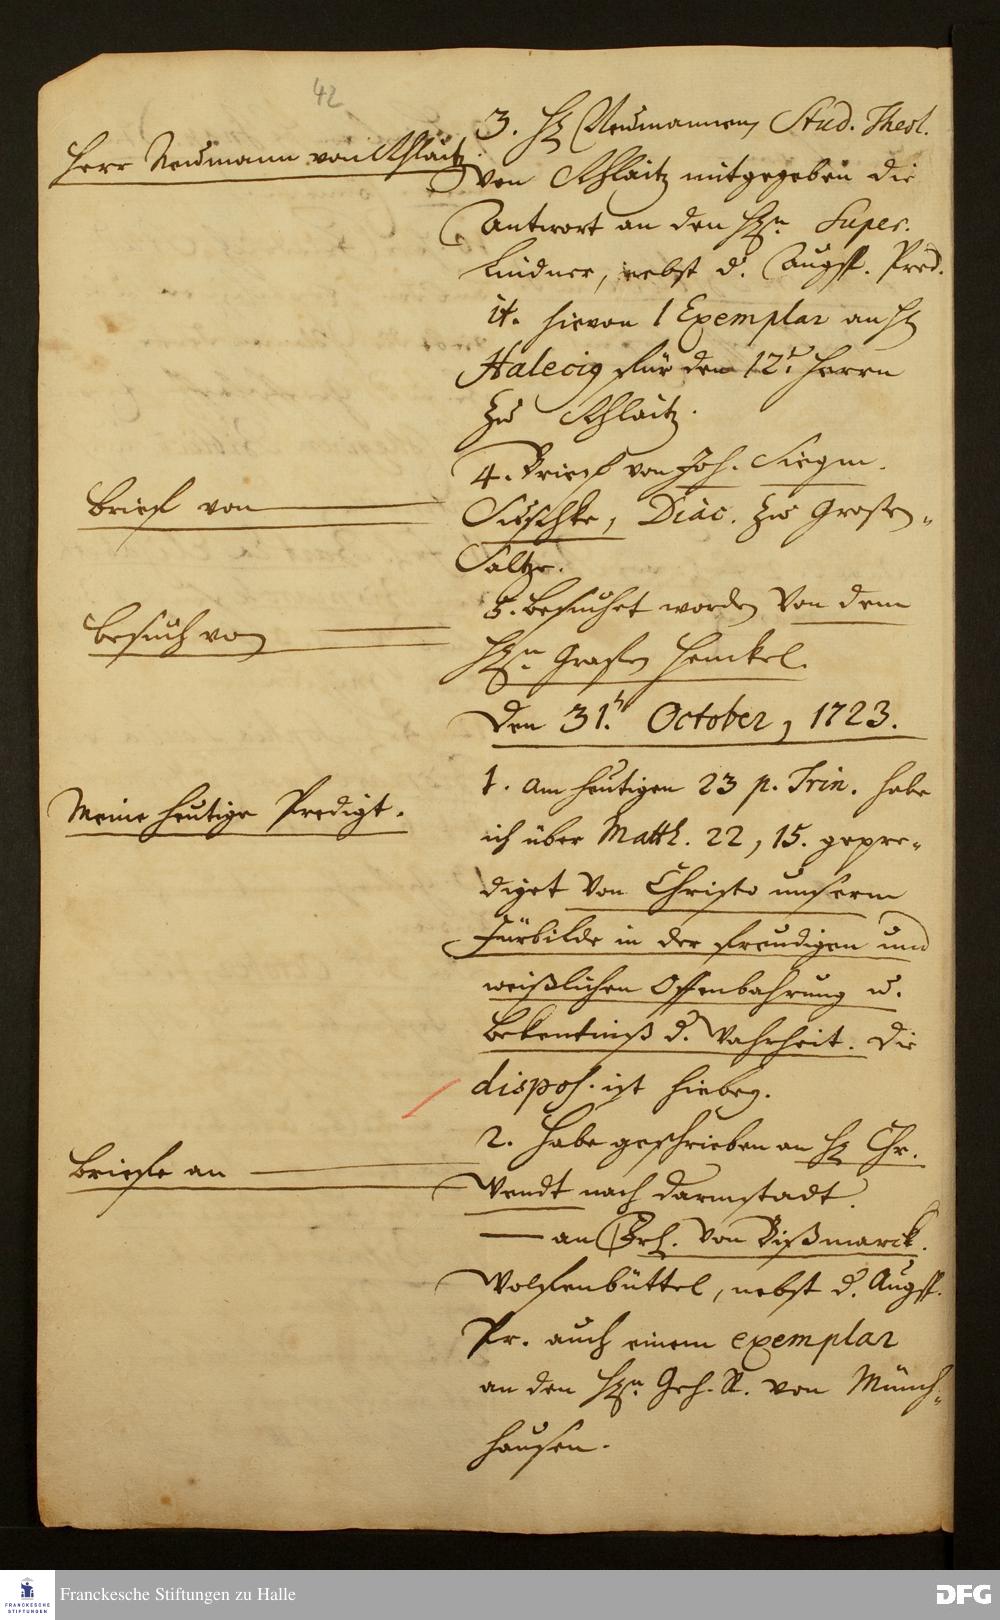 42
Herr Neumann von Schlaitz
3. H Neumannen, Stud. Theol.
von Schlaitz mitgegeben die
Antwort an den Hn. Super.
Lindner, nebst d. Augst. Pred.
it. hievon 1 Exemplar an H
Halecig für den 12t. Herrn
zu Schlaitz.
Brief von
4. Brief von Joh. Siegm.
Suschke, Diac. zu Großen-
Saltze.
Besuch von
5. Besuchet worden von dem
Hn. Grafen Henckel.
Den 31t. October, 1723.
Meine heutige Predigt.
1. Am heutigen 23 p. Trin. habe
ich über Matth. 22, 15. gepre-
diget von Christo unserm
Fürbilde in der freudigen und
weißlichen Offenbahrung u.
Bekentniß d. Wahrheit. Die
dispos. ist hiebey.
Briefe an
2. Habe geschrieben an H Chr.
Wendt nach Darmstadt.
— an Frl. von Bißmarck.
Wolfenbüttel, nebst d. Augst.
Pr. auch einem exemplar
an den Hn. Geh. R. von Münch-
hausen.
FRANCKESCHE STIFTUNGEN
Franckesche Stiftungen zu Halle
DFG